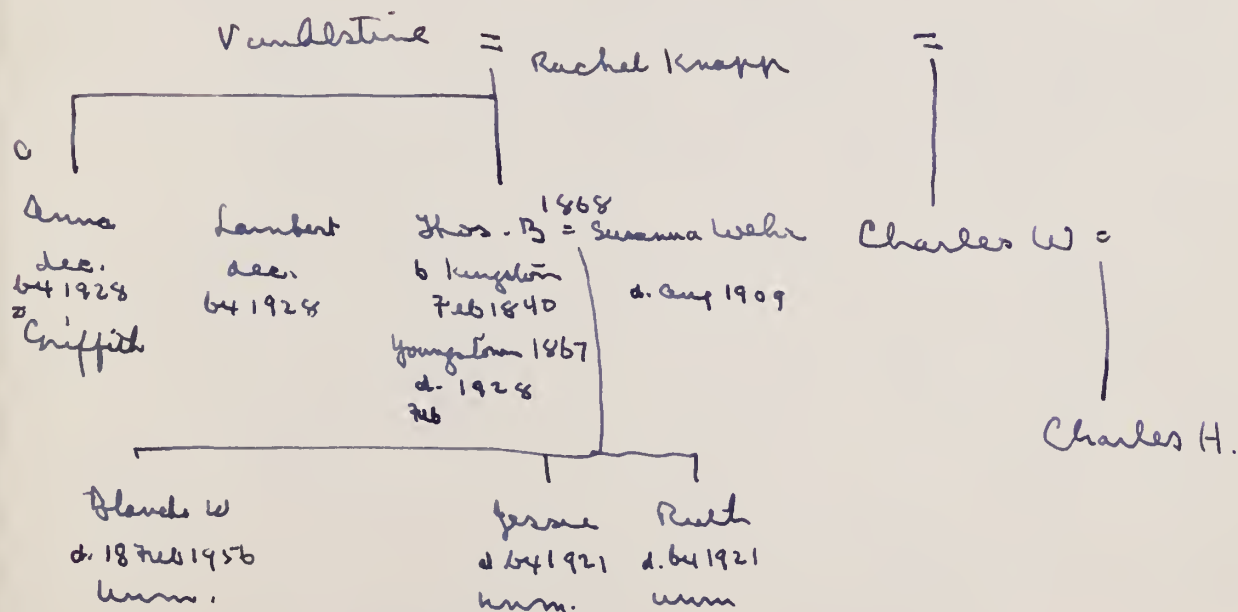 VanAlstine =
Rachel Knapp
=
Anna
dec.
b4 1928
=
Griffith
Lambert
dec.
b4 1928
1868
Thos. B = Susanna Wehr
b Kingston
Feb 1840
Youngstown 1867
d. 1928
Feb
d. Aug 1909
Charles W =
Charles H.
Blanche W
d. 18 Feb 1956
unm.
Jessie
d b4 1921
unm.
Ruth
d. b4 1921
unm